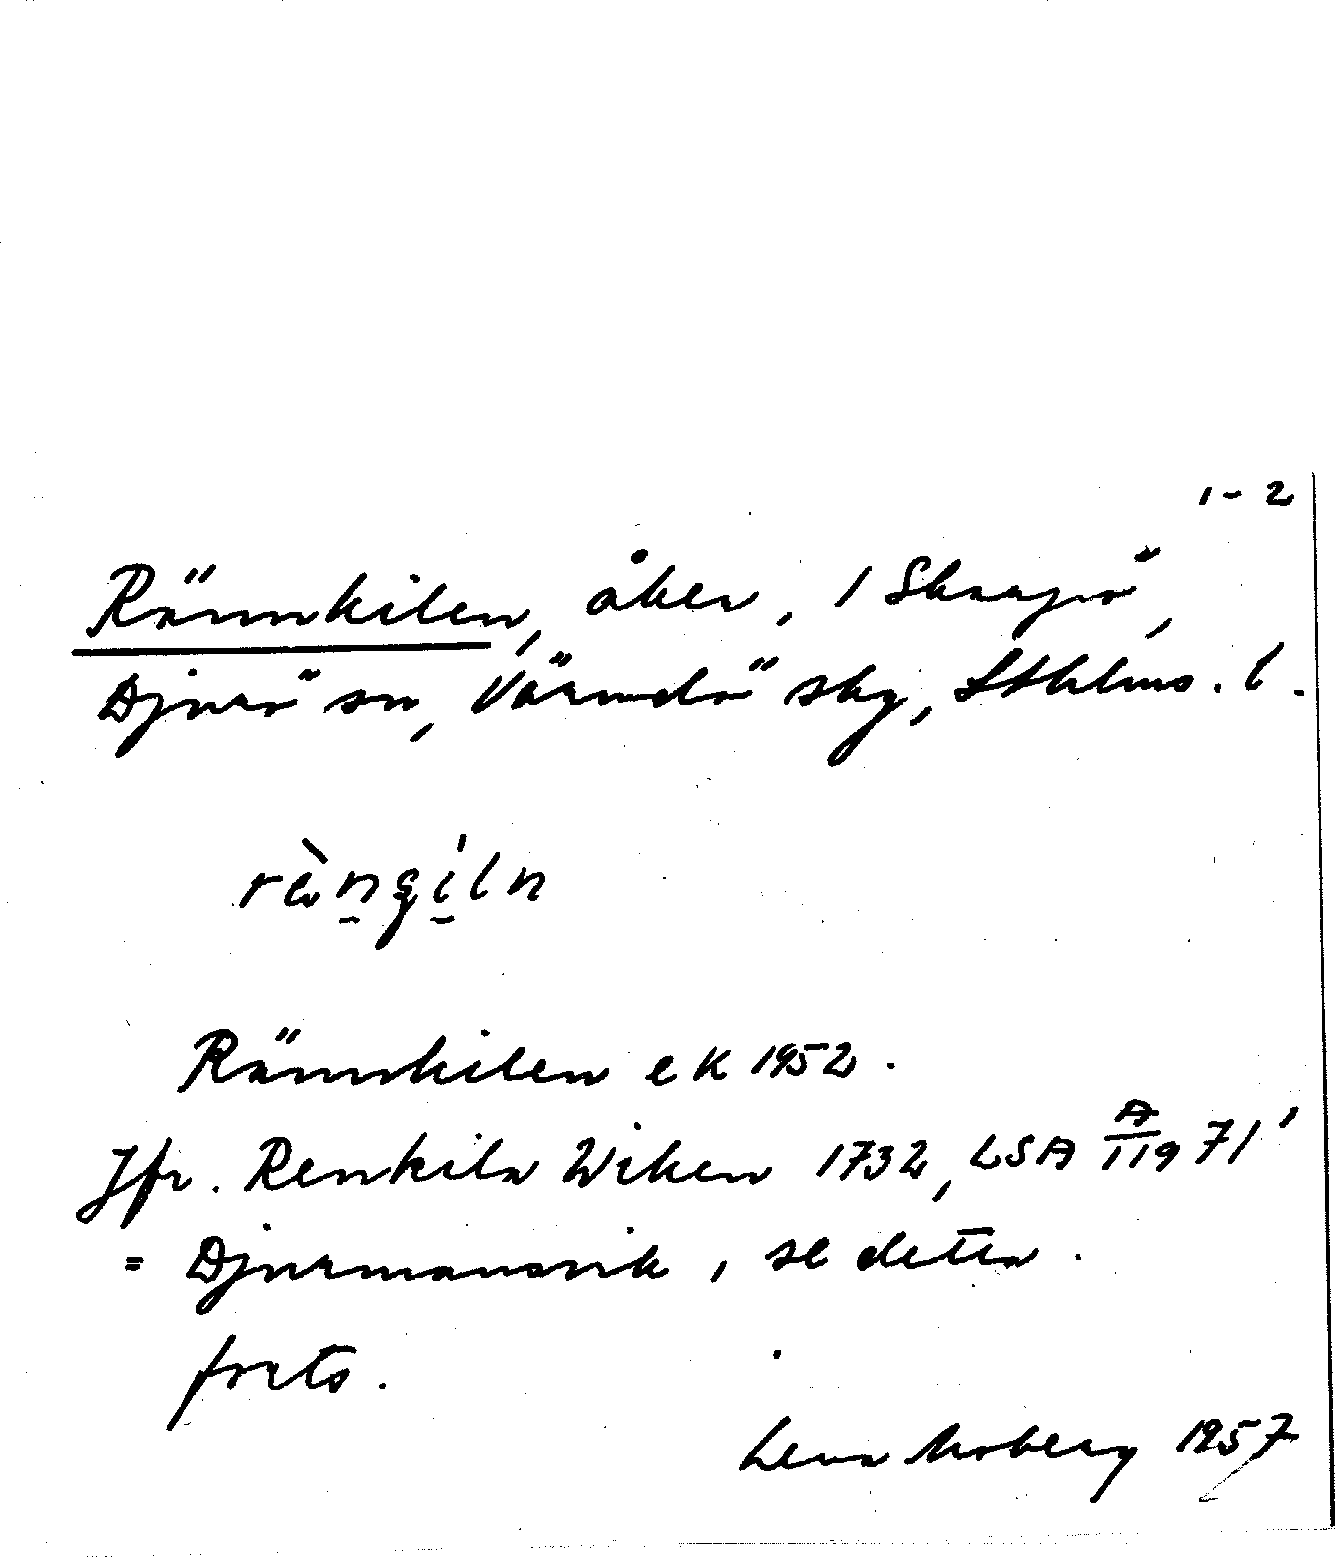 1-2
Rännkilen, åker, 1 Skarpö,
Djurö sn, Värmdö skg, Sthlms. l.
Rännkilen ek 1952.
Jfr. Renkila Wiken 1732, LSA A/119 71'
= Djurmansvik, se detta.
forts.
Lena Moberg 1957